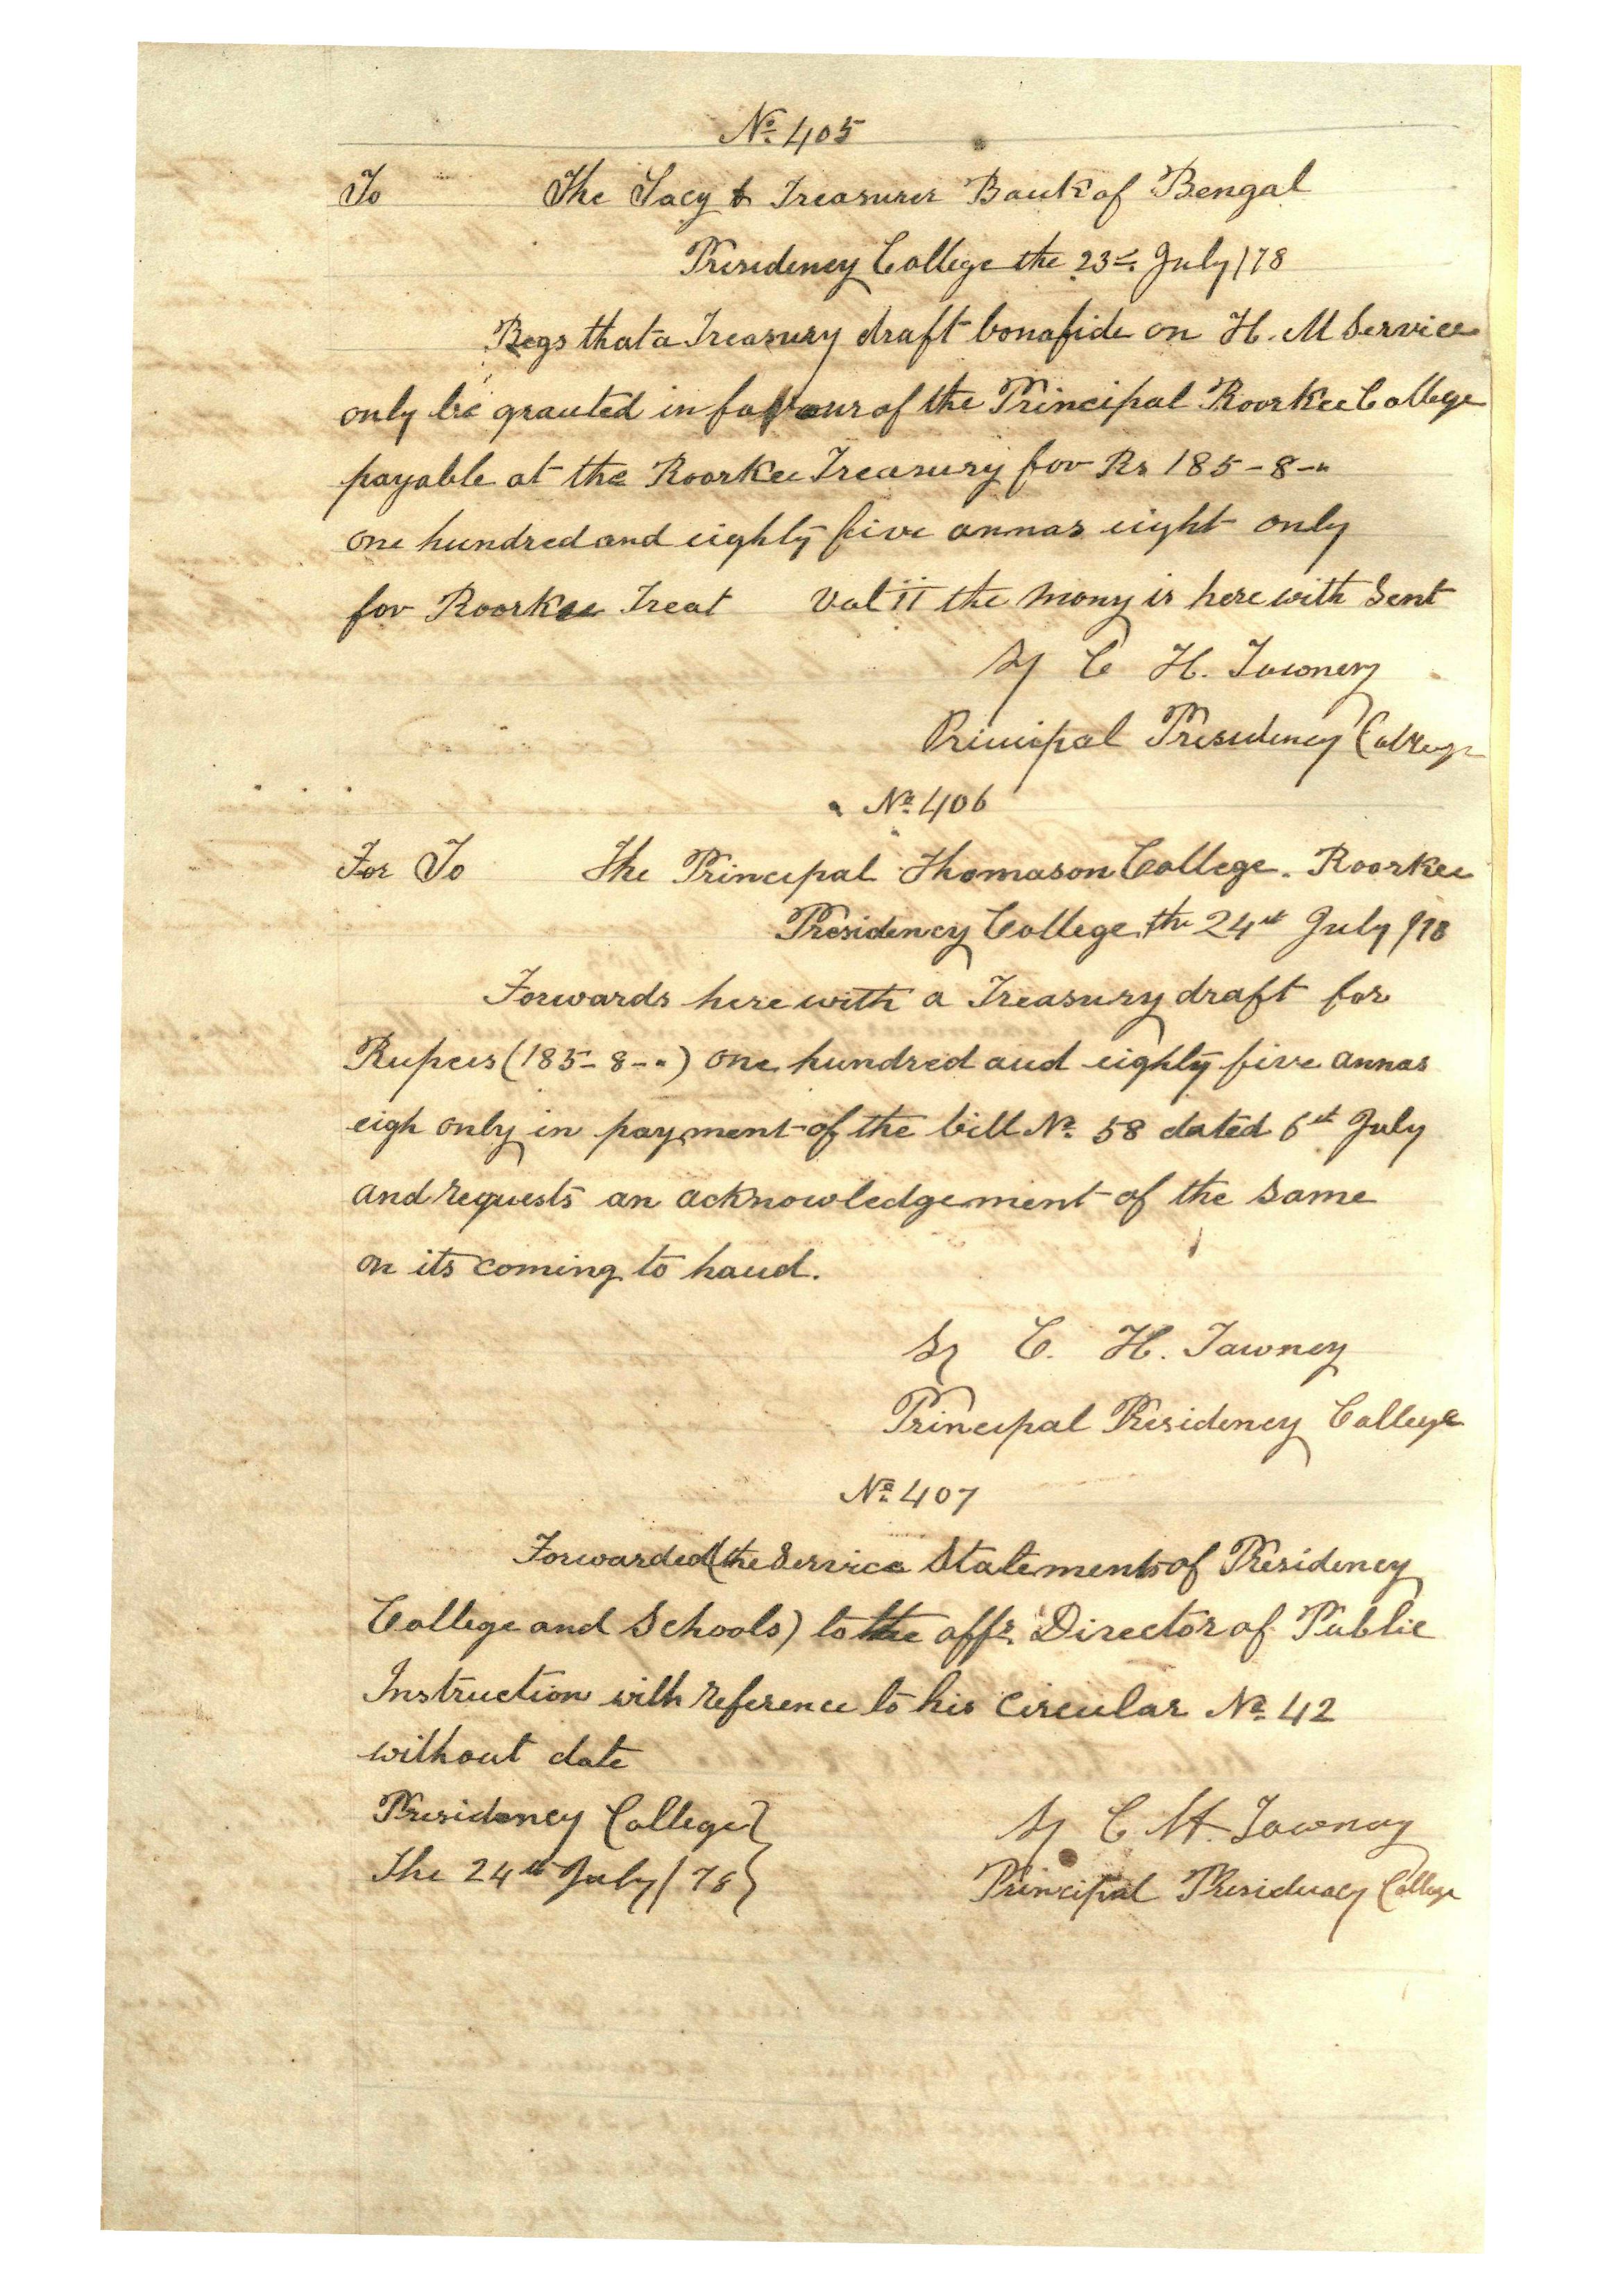 No. 405
To The Sacy & Treasurer Bank of Bengal
Presidency College the 23rd July/78
Begs that a Treasury draft bonafide on H. M Service
only be granted in favour of the Principal Roorkee College
payable at the Roorkee Treasury for Rs 185-8-"
one hundred and eighty five annas eight only
for Roorkee Treat Vol II the mony is here with Sent
Sy C H. Tawney
Principal Presidency College
No. 406
For To The Principal Thomason College. Roorkee
Presidency College the 24th July /78
Forwards here with a Treasury draft for
Rupees (185-8-") one hundred and eighty five annas
eigh only in payment of the bill No. 58 dated 6th July
and requests an acknowledgement of the same
on its coming to hand.
Sy C. H. Tawney
Principal Presidency College
No. 407
Forwarded (the Service Statements of Presidency
College and Schools) to the offg. Director of Public
Instruction with reference to his Circular No. 42
without date
Presidency College }
The 24th July / 78 }
Sy C. H. Tawney
Principal Presidency College